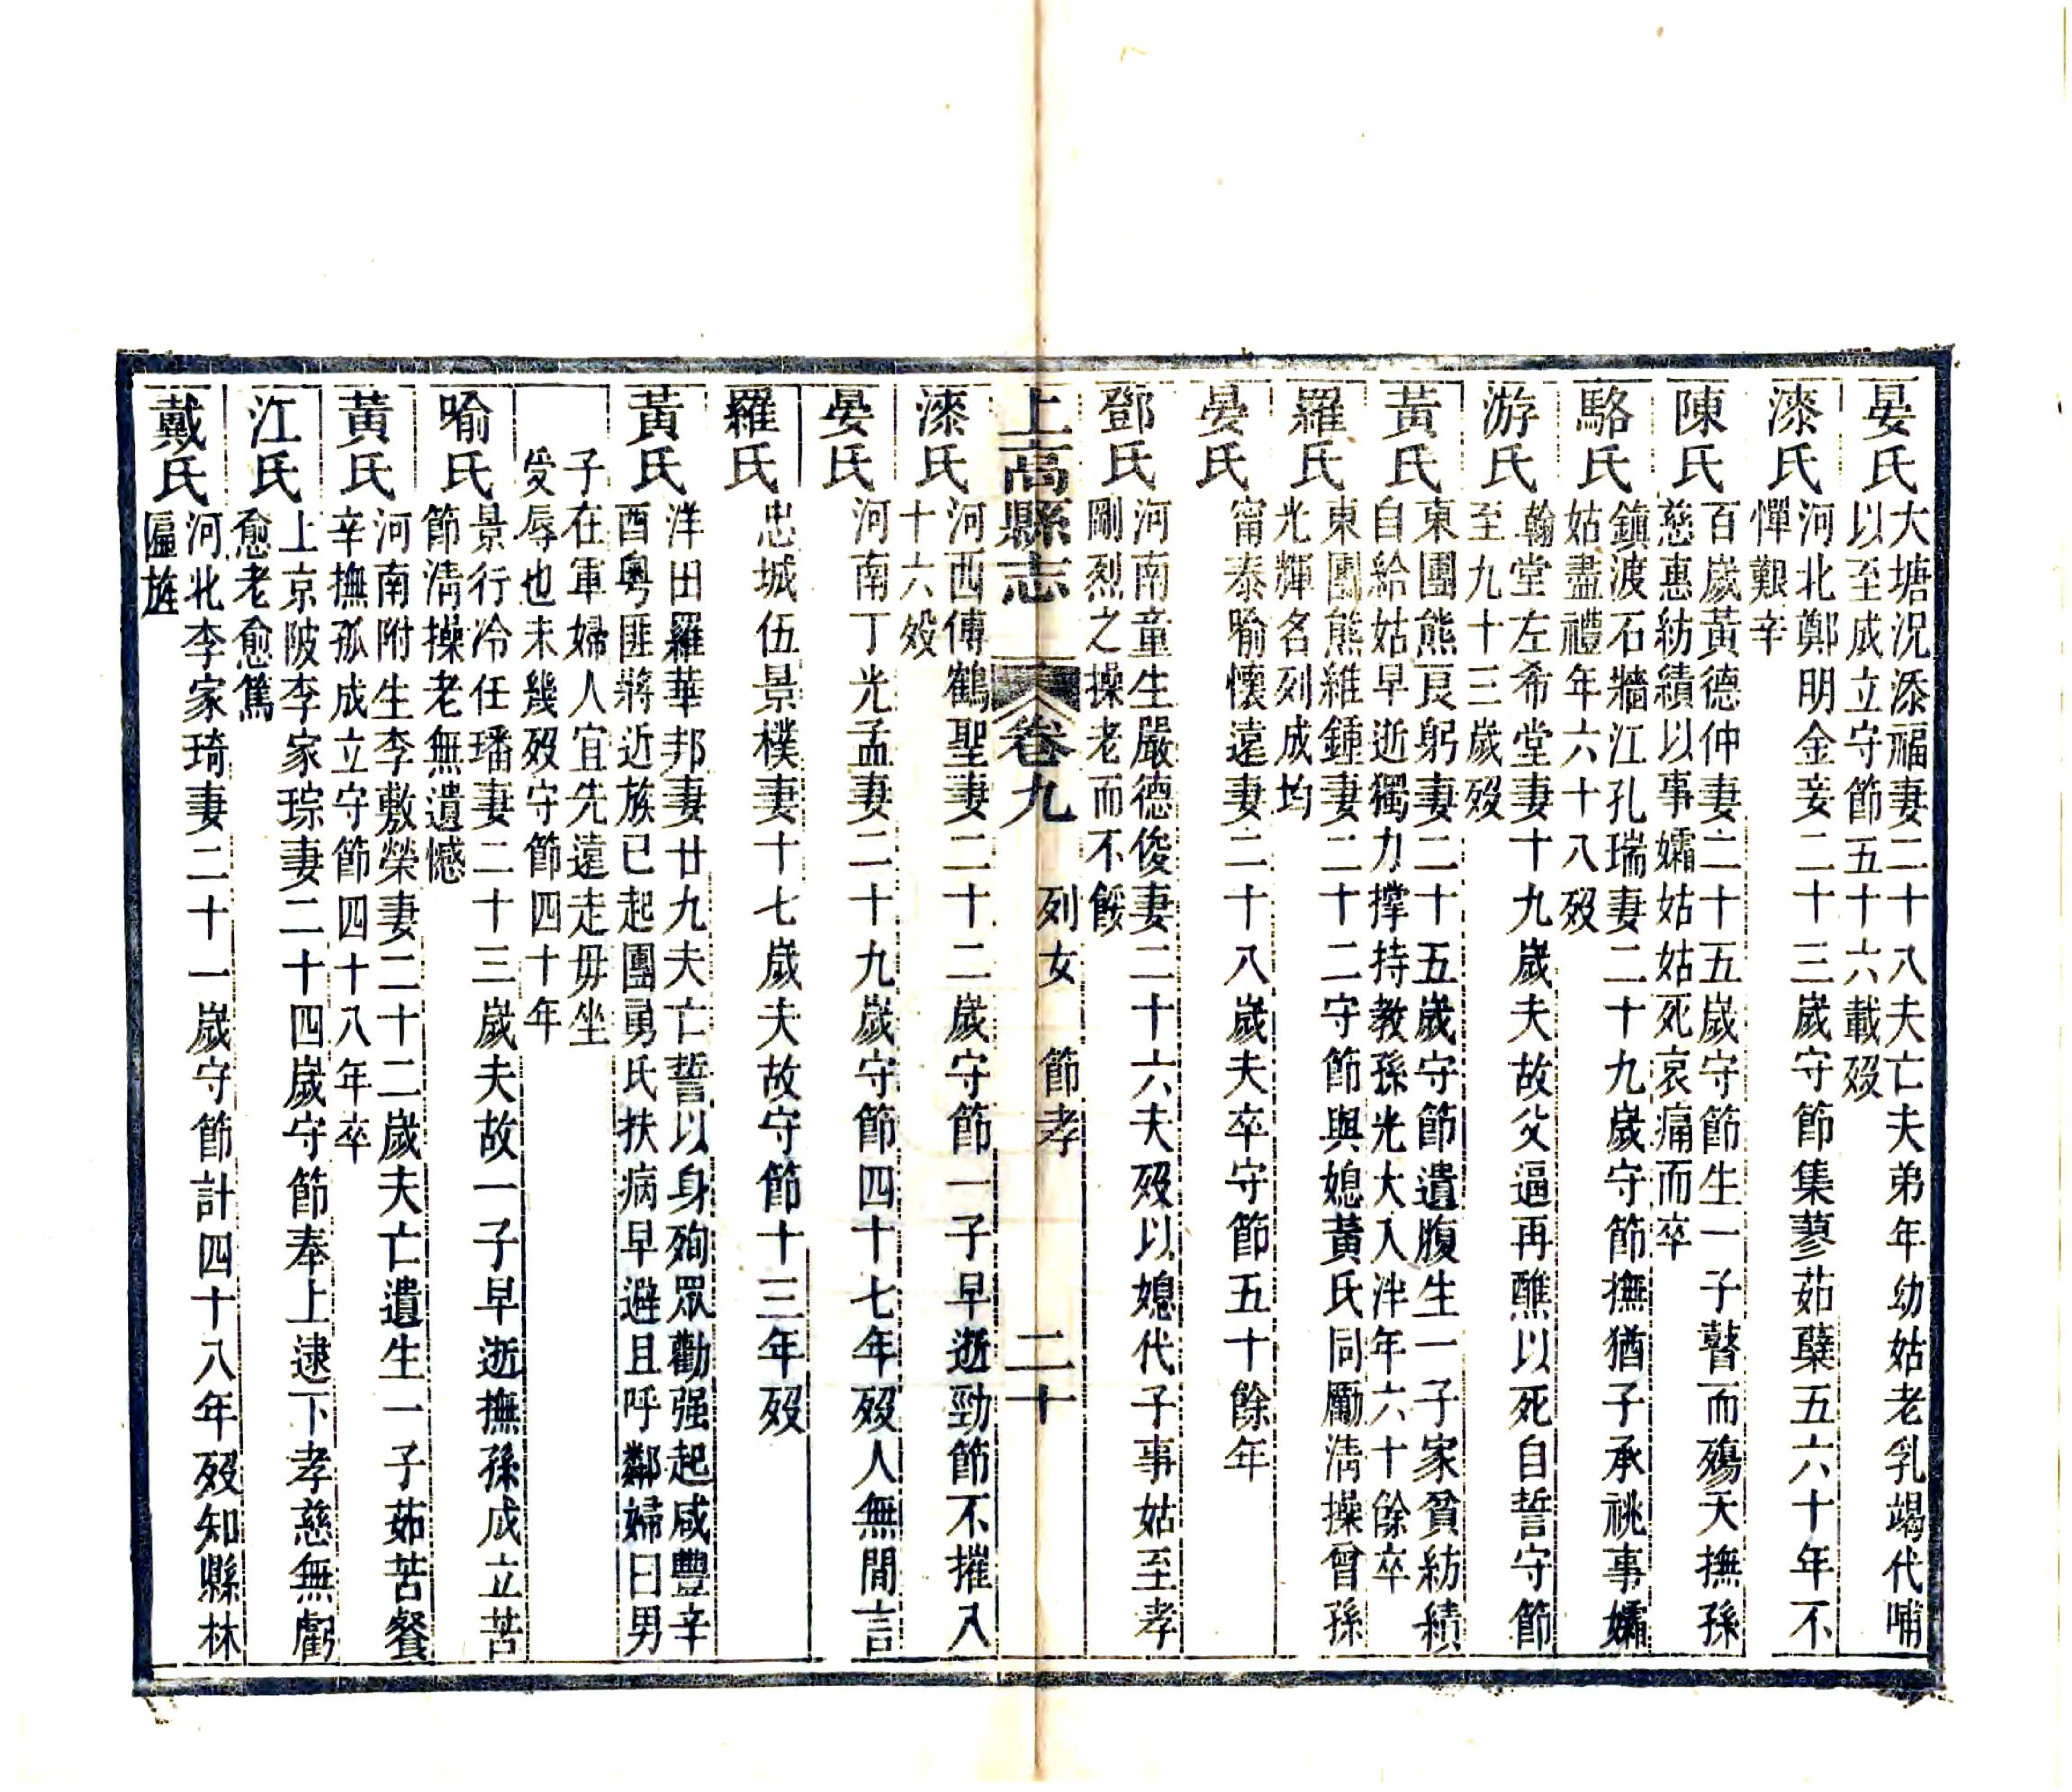 晏氏
大塘況添福妻二十八夫亡夫弟年幼姑老乳竭代哺
以至成立守節五十六載歿
漆氏
河北鄭明金妾二十三歲守節集蓼茹蘗五六十年不
憚艱辛
陳氏
百歲黃德仲妻二十五歲守節生一子瞽而殤夭撫孫
慈惠紡績以事孀姑姑死哀痛而卒
駱氏
鎮渡石牆江孔瑞妻二十九歲守節撫猶子承祧事孀
姑盡禮年六十八歿
游氏
翰堂左希堂妻十九歲夫故父逼再醮以死自誓守節
至九十三歲歿
黃氏
東團熊艮躬妻二十五歲守節遺腹生一子家貧紡績
自給姑早逝獨力撑持教孫光大入泮年六十餘卒
羅氏
東團熊維鍾妻二十二守節與媳黃氏同勵清操曾孫
光輝名列成均
晏氏
甯泰喻懷遠妻二十八歲夫卒守節五十餘年
鄧氏
河南童生嚴德俊妻二十六夫歿以媳代子事姑至孝
剛烈之操老而不餒
上高縣志 卷九 列女 節孝 二十
漆氏
河西傅鶴聖妻二十二歲守節一子早逝勁節不摧八
十六歿
晏氏
河南丁光孟妻二十九歲守節四十七年歿人無閒言
羅氏
忠城伍景樸妻十七歲夫故守節十三年歿
黃氏
洋田羅華邦妻廿九夫亡誓以身殉眾勸强起咸豐辛
酉粵匪將近族已起團勇氏扶病早避且呼鄰婦曰男
子在軍婦人宜先遠走毋坐
受辱也未幾歿守節四十年
喻氏
景行冷任璠妻二十三歲夫故一子早逝撫孫成立苦
節清操老無遺憾
黃氏
河南附生李敷榮妻二十二歲夫亡遺生一子茹苦餐
辛撫孤成立守節四十八年卒
江氏
上京陂李家琮妻二十四歲守節奉上逮下孝慈無虧
愈老愈篤
戴氏
河北李家琦妻二十一歲守節計四十八年歿知縣林
匾旌